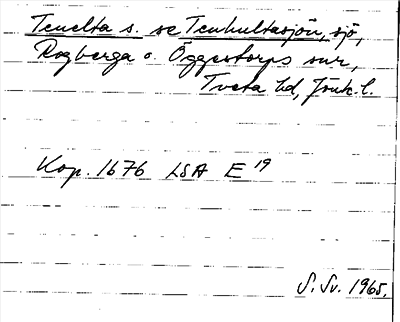 Tenelta s. se Tenhultasjön, sjö,
Rogberga o. Öggestorps snr,
Tveta hd, Jönk. l.
Kop. 1676 LSA E 19
S. Sv. 1965.